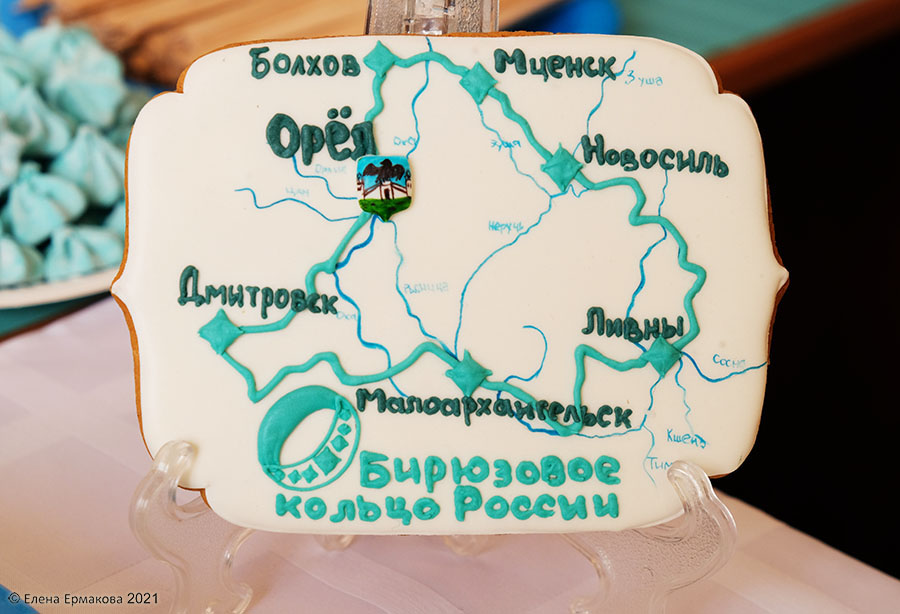 Болхов
Мценск
Зуша
Орёл
Зуша
Новосиль
Цон
Неручь
Дмитровск
Рыбница
Ока
Ливны
Сосна
Малоархангельск
Кшень
Тим
Бирюзовое
кольцо России
© Елена Ермакова 2021